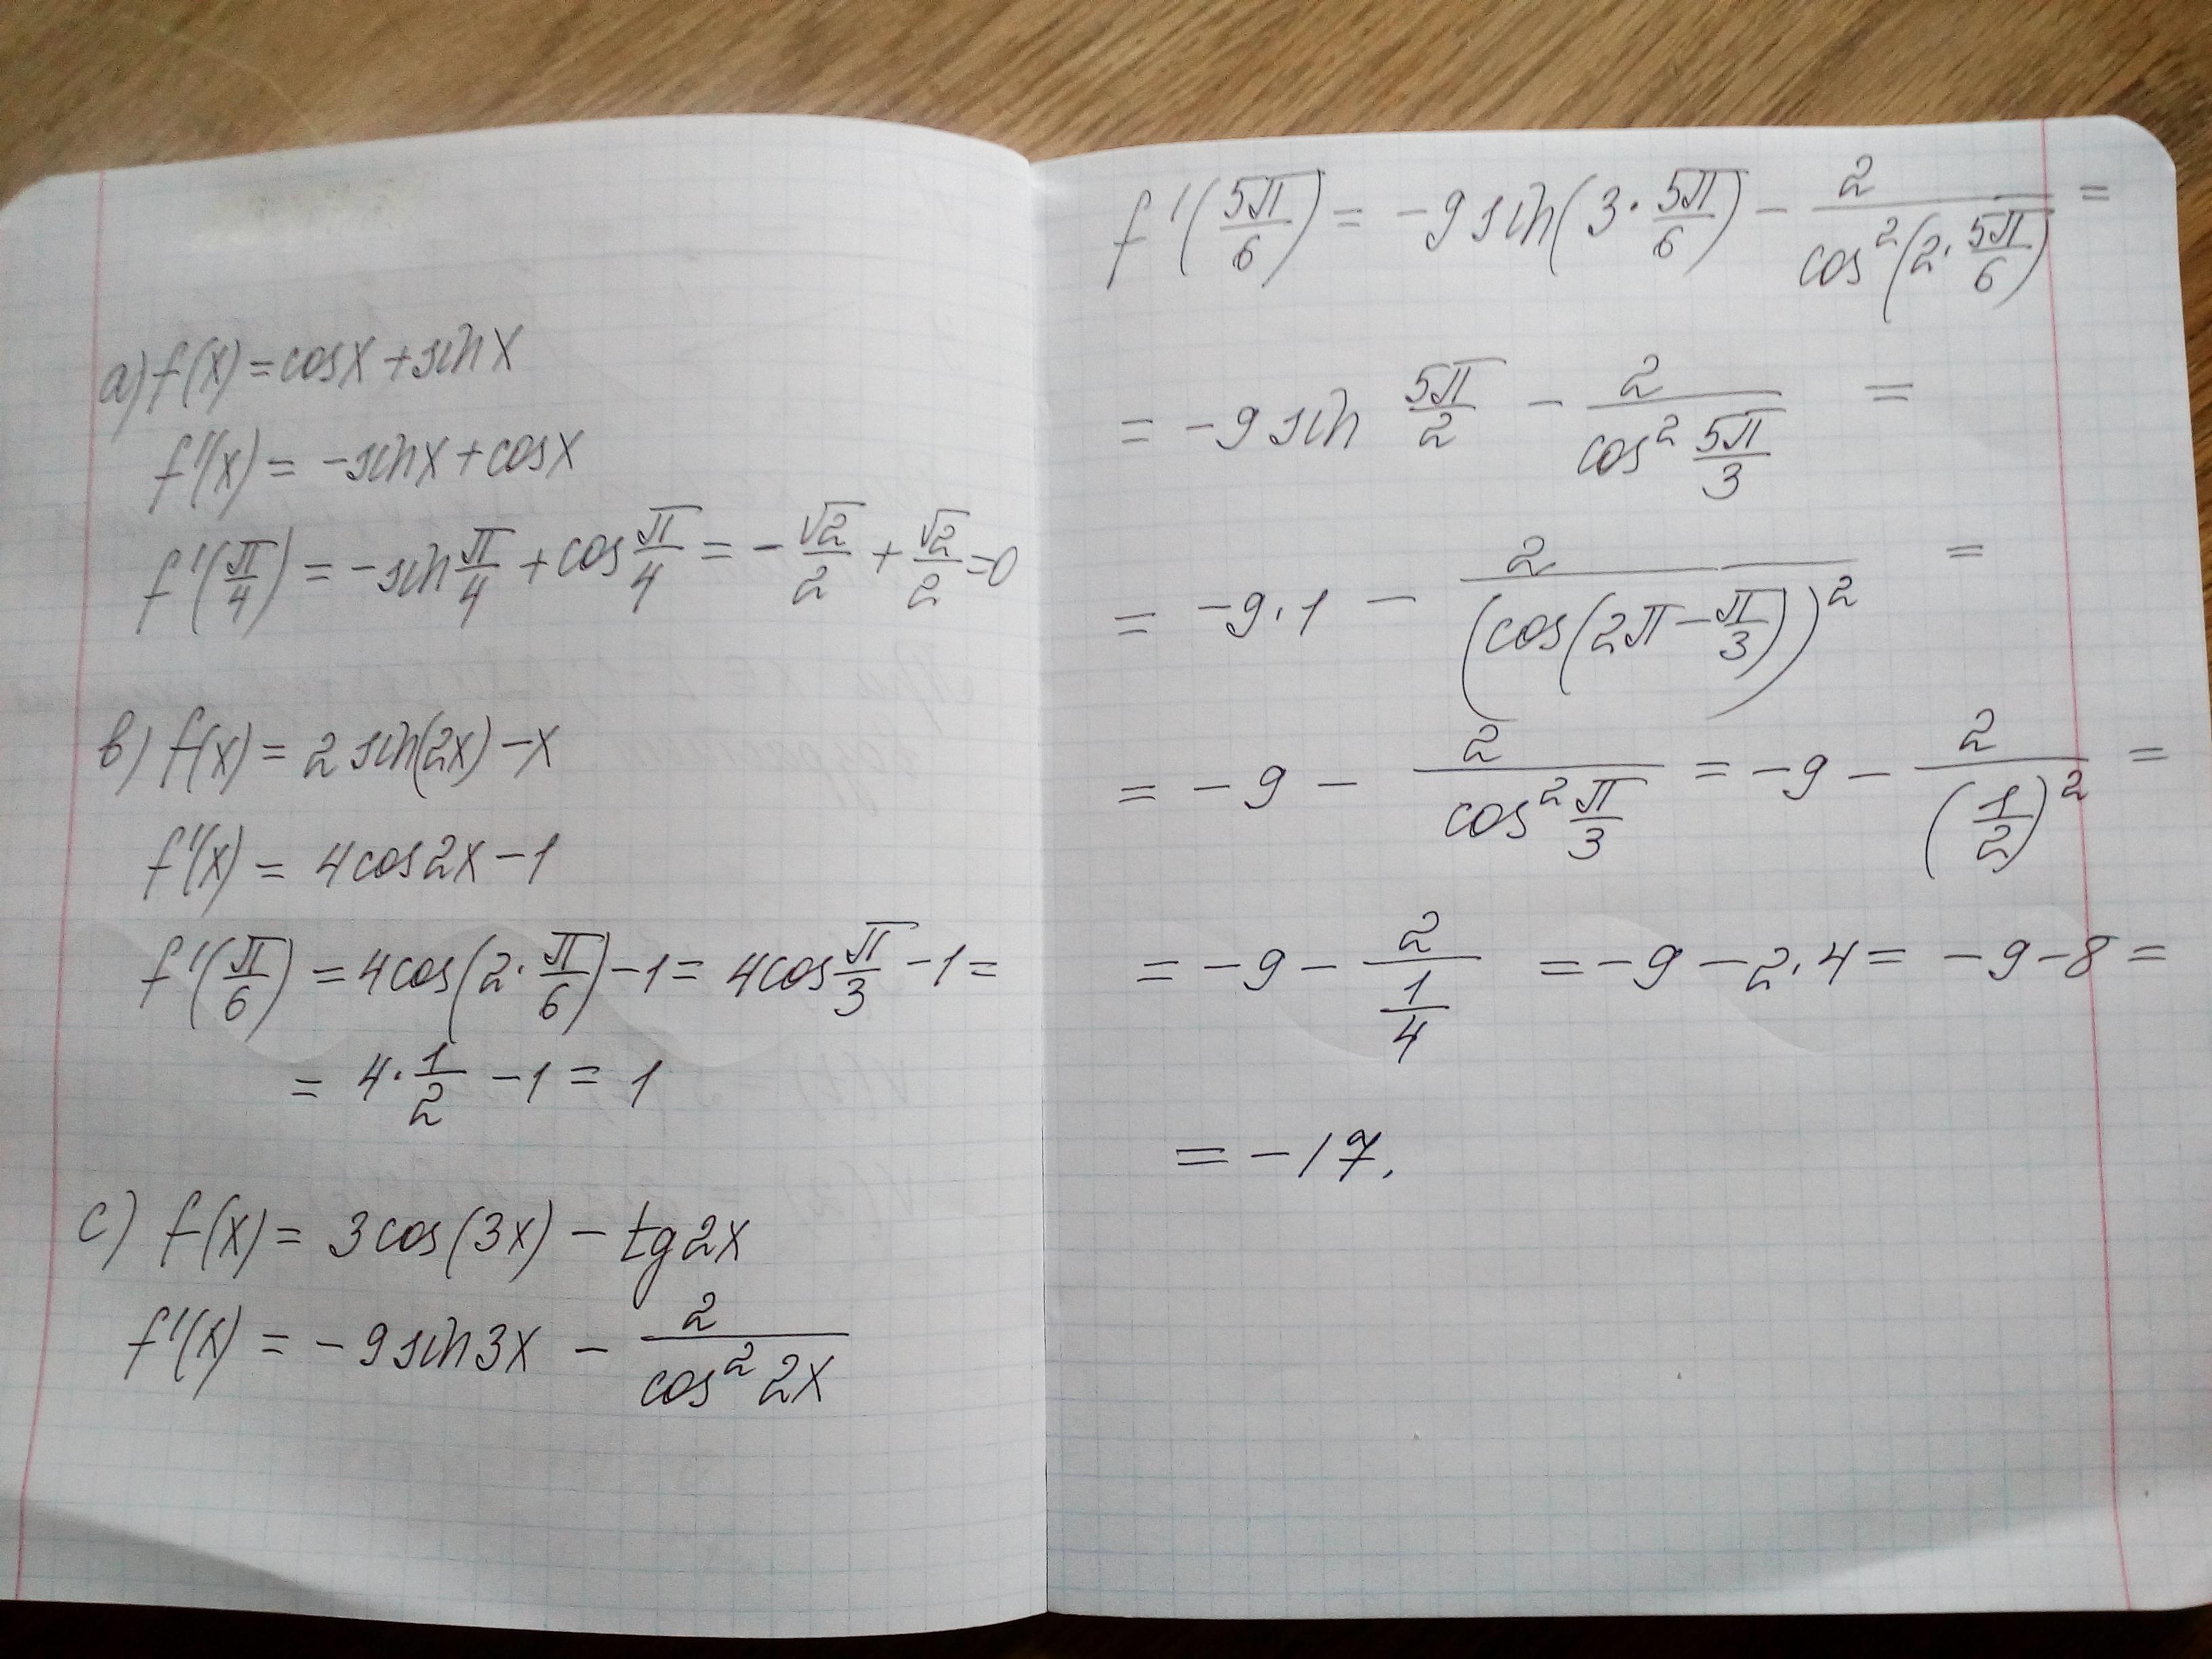 a) f(x) = cosx + sinx
f'(x) = -sinx + cosx
f'(π/4) = -sin π/4 + cos π/4 = -√2/2 + √2/2 = 0
b) f(x) = 2 sin(2x) - x
f'(x) = 4cos2x - 1
f'(π/6) = 4cos(2·π/6) - 1 = 4cos π/3 - 1 =
= 4·1/2 - 1 = 1
c) f(x) = 3cos(3x) - tg2x
f'(x) = -9sin3x - 2/cos² 2x
f'(5π/6) = -9sin(3·5π/6) - 2/cos²(2·5π/6) =
= -9sin 5π/2 - 2/cos² 5π/3 =
= -9·1 - 2/(cos(2π - π/3))² =
= -9 - 2/cos² π/3 = -9 - 2/(1/2)² =
= -9 - 2/(1/4) = -9 - 2·4 = -9 - 8 =
= -17.